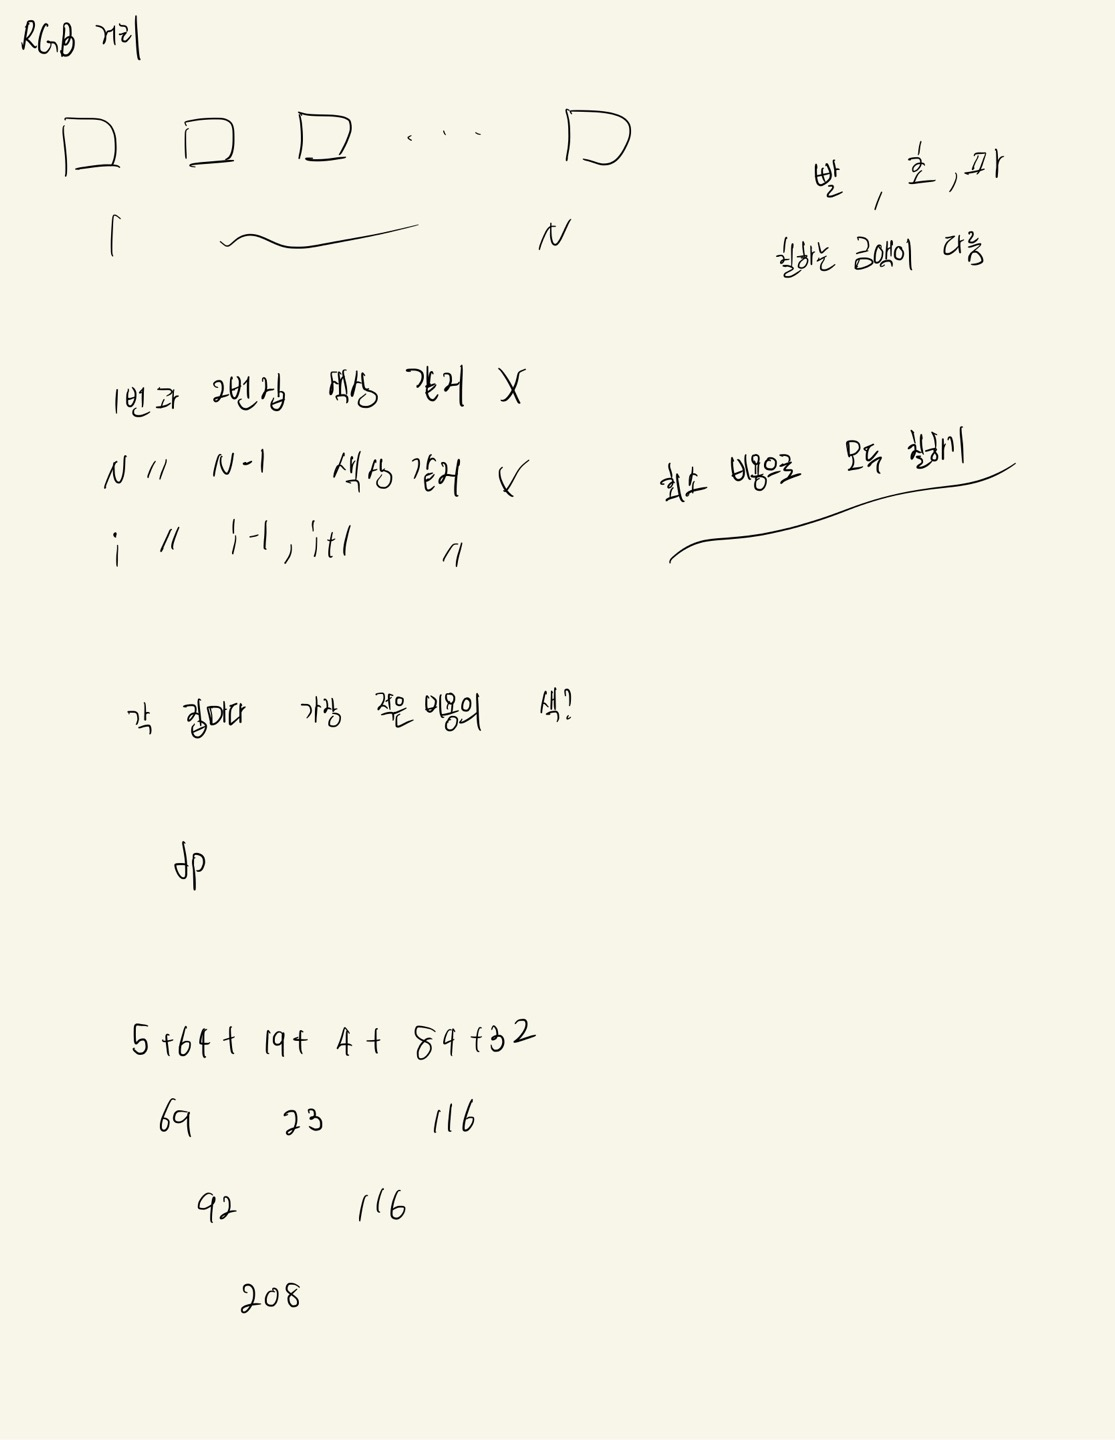 RGB 거리
1 N
빨, 초, 파
칠하는 금액이 다름
1번과 2번집 색상 같거 X
N 〃 N-1 색상 같거 X
i 〃 i-1, i+1 〃
최소 비용으로 모두 칠하기
각 집마다 가장 적은 비용의 색?
dp
5+64+ 19+ 4+ 89+32
69 23 116
92 116
208